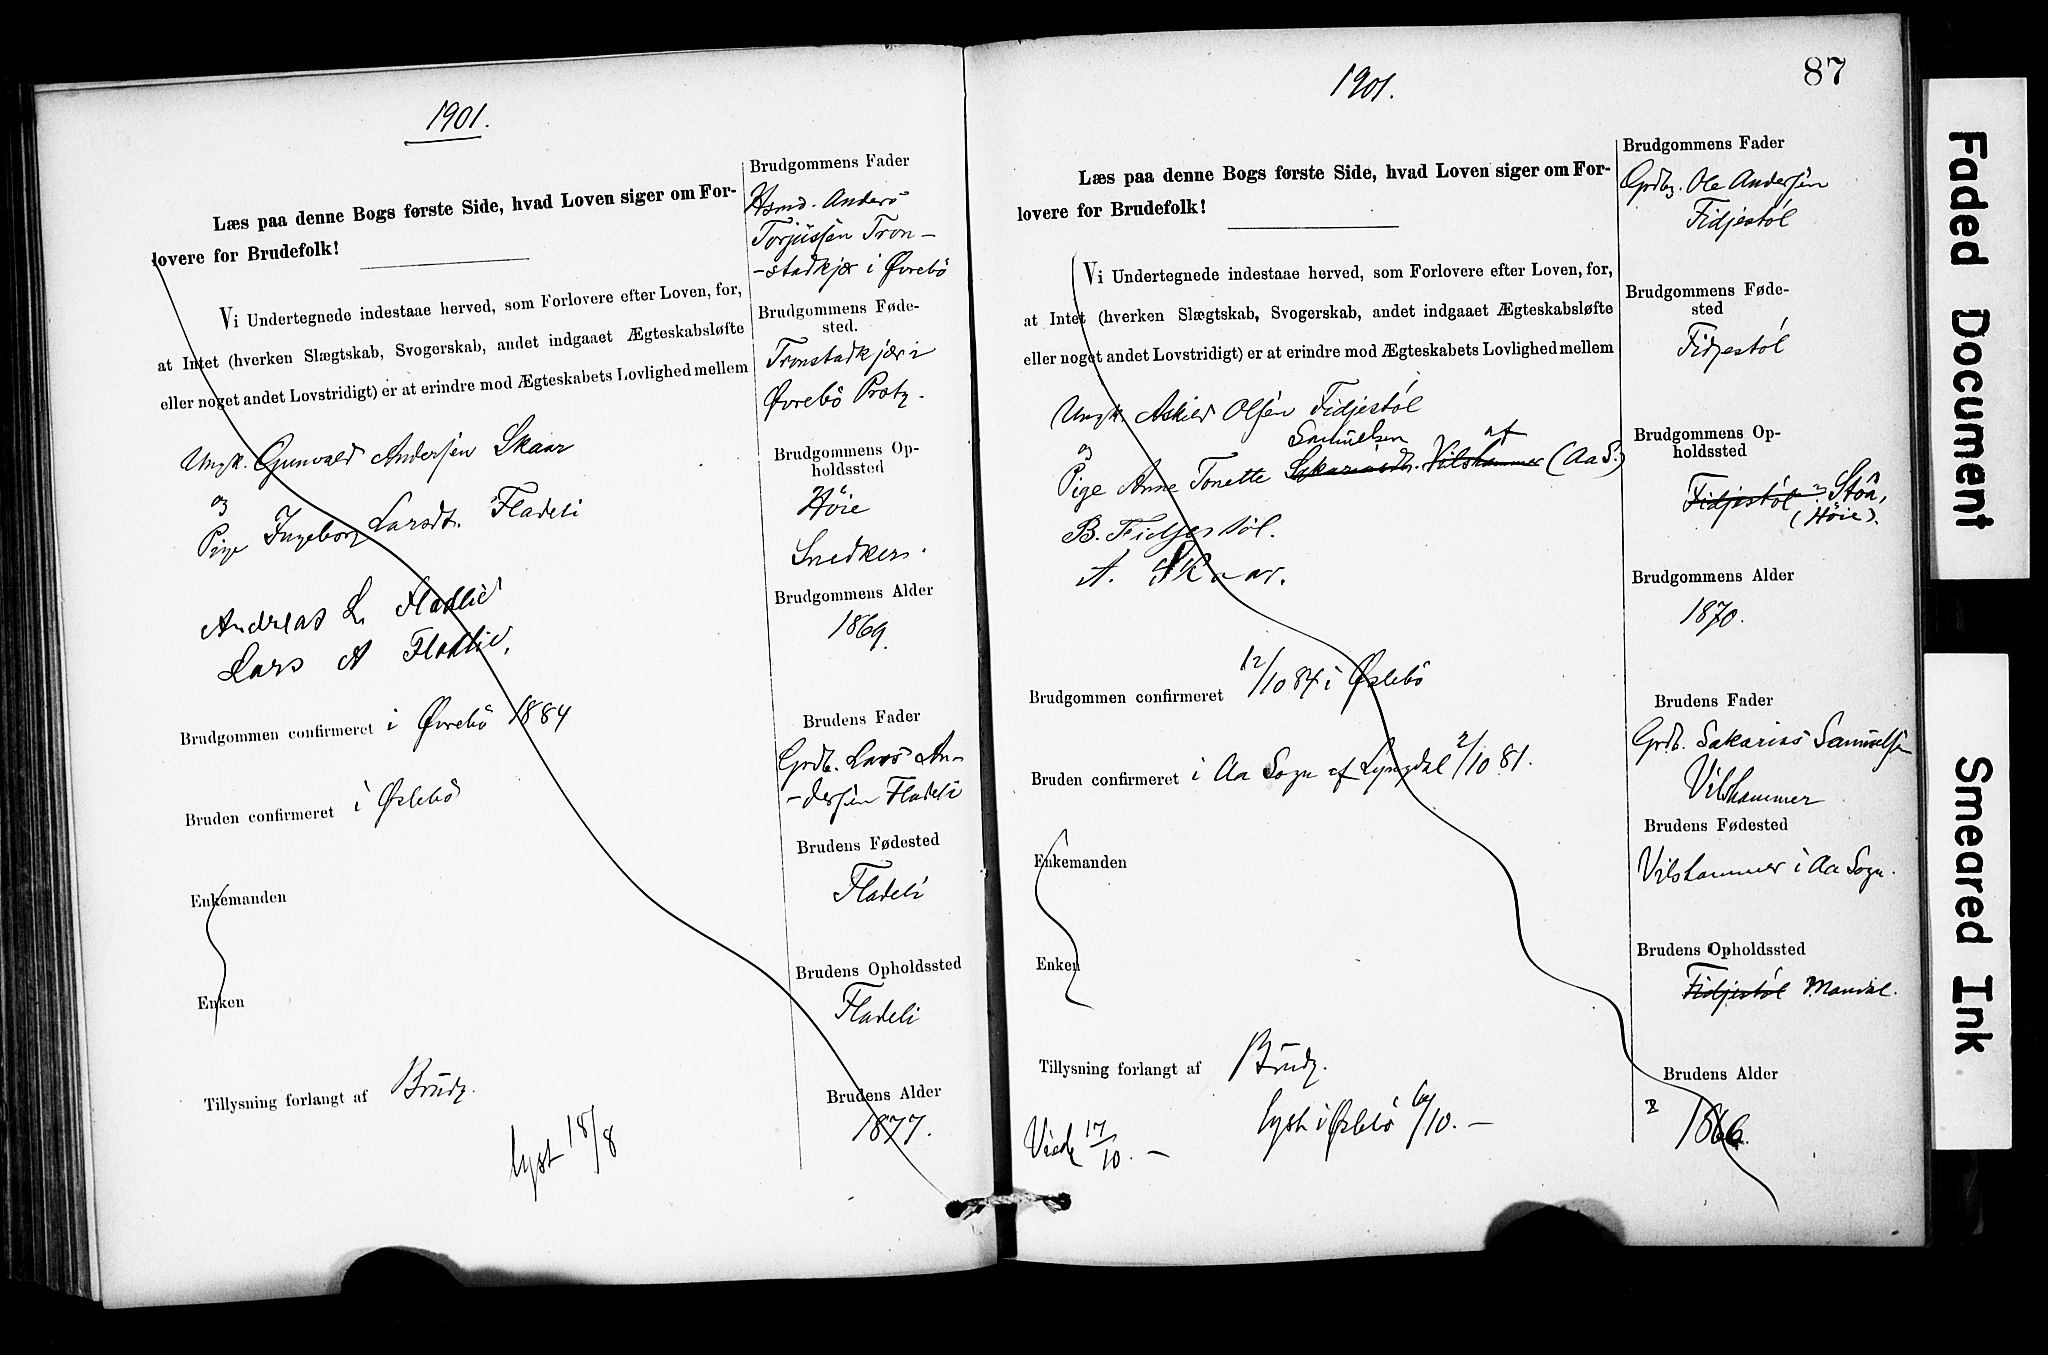 1901.
Læs paa denne Bogs første Side, hvad Loven siger om For-
lovere for Brudefolk!
Vi Undertegnede indestaae herved, som Forlovere efter Loven, for,
at Intet (hverken Slægtskab, Svogerskab, andet indgaaet Ægteskabsløfte
eller noget andet Lovstridigt) er at erindre mod Ægteskabets Lovlighed mellem
Ungk. Gunvald Andersen Skaar
og
Pige Ingeborg Larsdt. Fladeli
Andreas L. Fladlid
Lars A Fladlid.
Brudgommen confirmeret i Øvrebö 1884
Bruden confirmeret i Øslebö
Enkemanden
Enken
Tillysning forlangt af Brudg.
lyst 18/8
Brudgommens Fader
Hsmd. Anders
Torjussen Tron-
-stadkjær i Øvrebö
Brudgommens Føde-
sted.
Tronstadkjær i
Øvrebö Prstg.
Brudgommens Op-
holdssted
Höie
Snedker.
Brudgommens Alder
1869.
Brudens Fader
Grdb. Lars An-
-dersen Fladeli
Brudens Fødested
Fladeli
Brudens Opholdssted
Fladeli
Brudens Alder
1877.
1901.
87
Læs paa denne Bogs første Side, hvad Loven siger om For-
lovere for Brudefolk!
Vi Undertegnede indestaae herved, som Forlovere efter Loven, for,
at Intet (hverken Slægtskab, Svogerskab, andet indgaaet Ægteskabsløfte
eller noget andet Lovstridigt) er at erindre mod Ægteskabets Lovlighed mellem
Ungk. Askild Olsen Fidjestöl
og Samuelsen af
Pige Anne Tonette Sakariasdt. Vilshammer (Aa S.)
B. Fidjestöl.
A. Skaar.
Brudgommen confirmeret 12/10 84 i Øslebö
Bruden confirmeret i Aa Sogn af Lyngdal 2/10 81.
Enkemanden
Enken
Tillysning forlangt af Brudg.
lyst i Øslebö 6/10. -
Viede 17/10. -
Brudgommens Fader
Grdbg. Ole Andersen
Fidjestöl
Brudgommens Føde-
sted
Fidjestöl
Brudgommens Op-
holdssted
Fidjestöl
(Höie).
Brudgommens Alder
1870.
Brudens Fader
Grdb. Sakarias Samuelsen
Vilshammer
Brudens Fødested
Vilshammer i Aa Sogn.
Brudens Opholdssted
Fidjestöl Mandal.
Brudens Alder
1866.
Faded Document
Smeared Ink